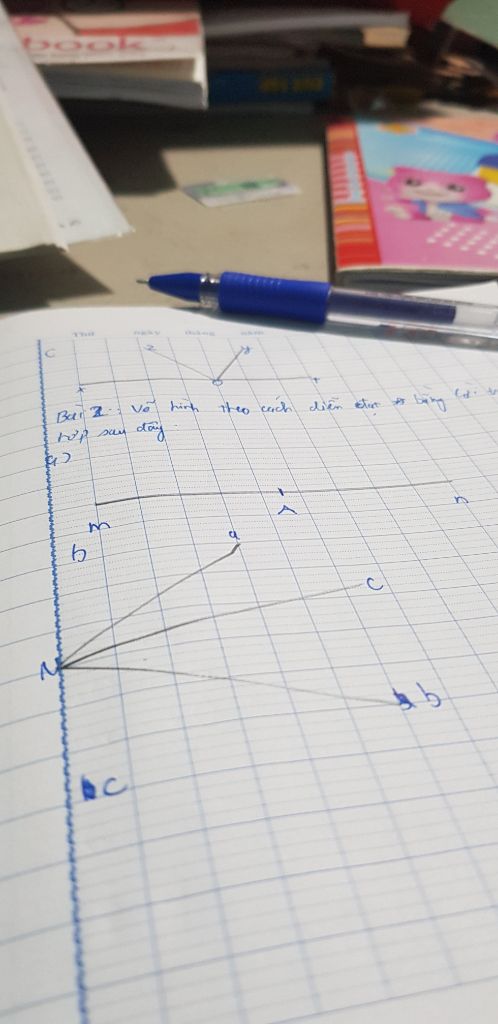 book
Thứ ngày tháng năm
C z y
x O t
Bài 2: Vẽ hình theo cách diễn đạt bằng lời
hợp sau đây.
a)
m A n
b
a
c
N
b
c